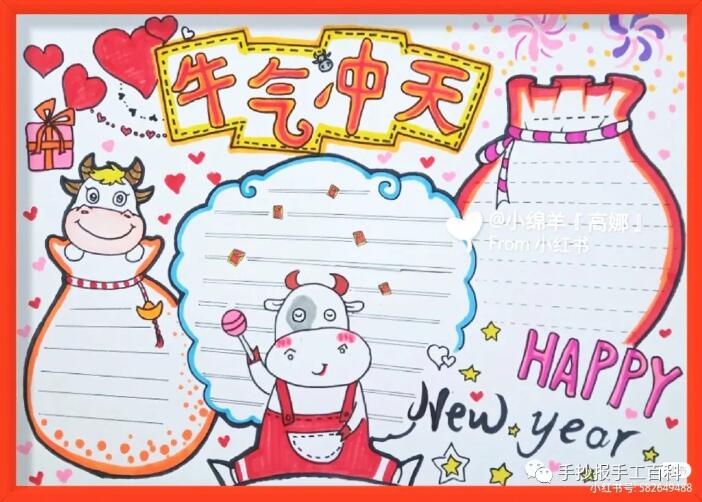 牛气冲天
@小绵羊『高娜』
From 小红书
HAPPY
New year
手抄报手工百科
小红书号: 582649488